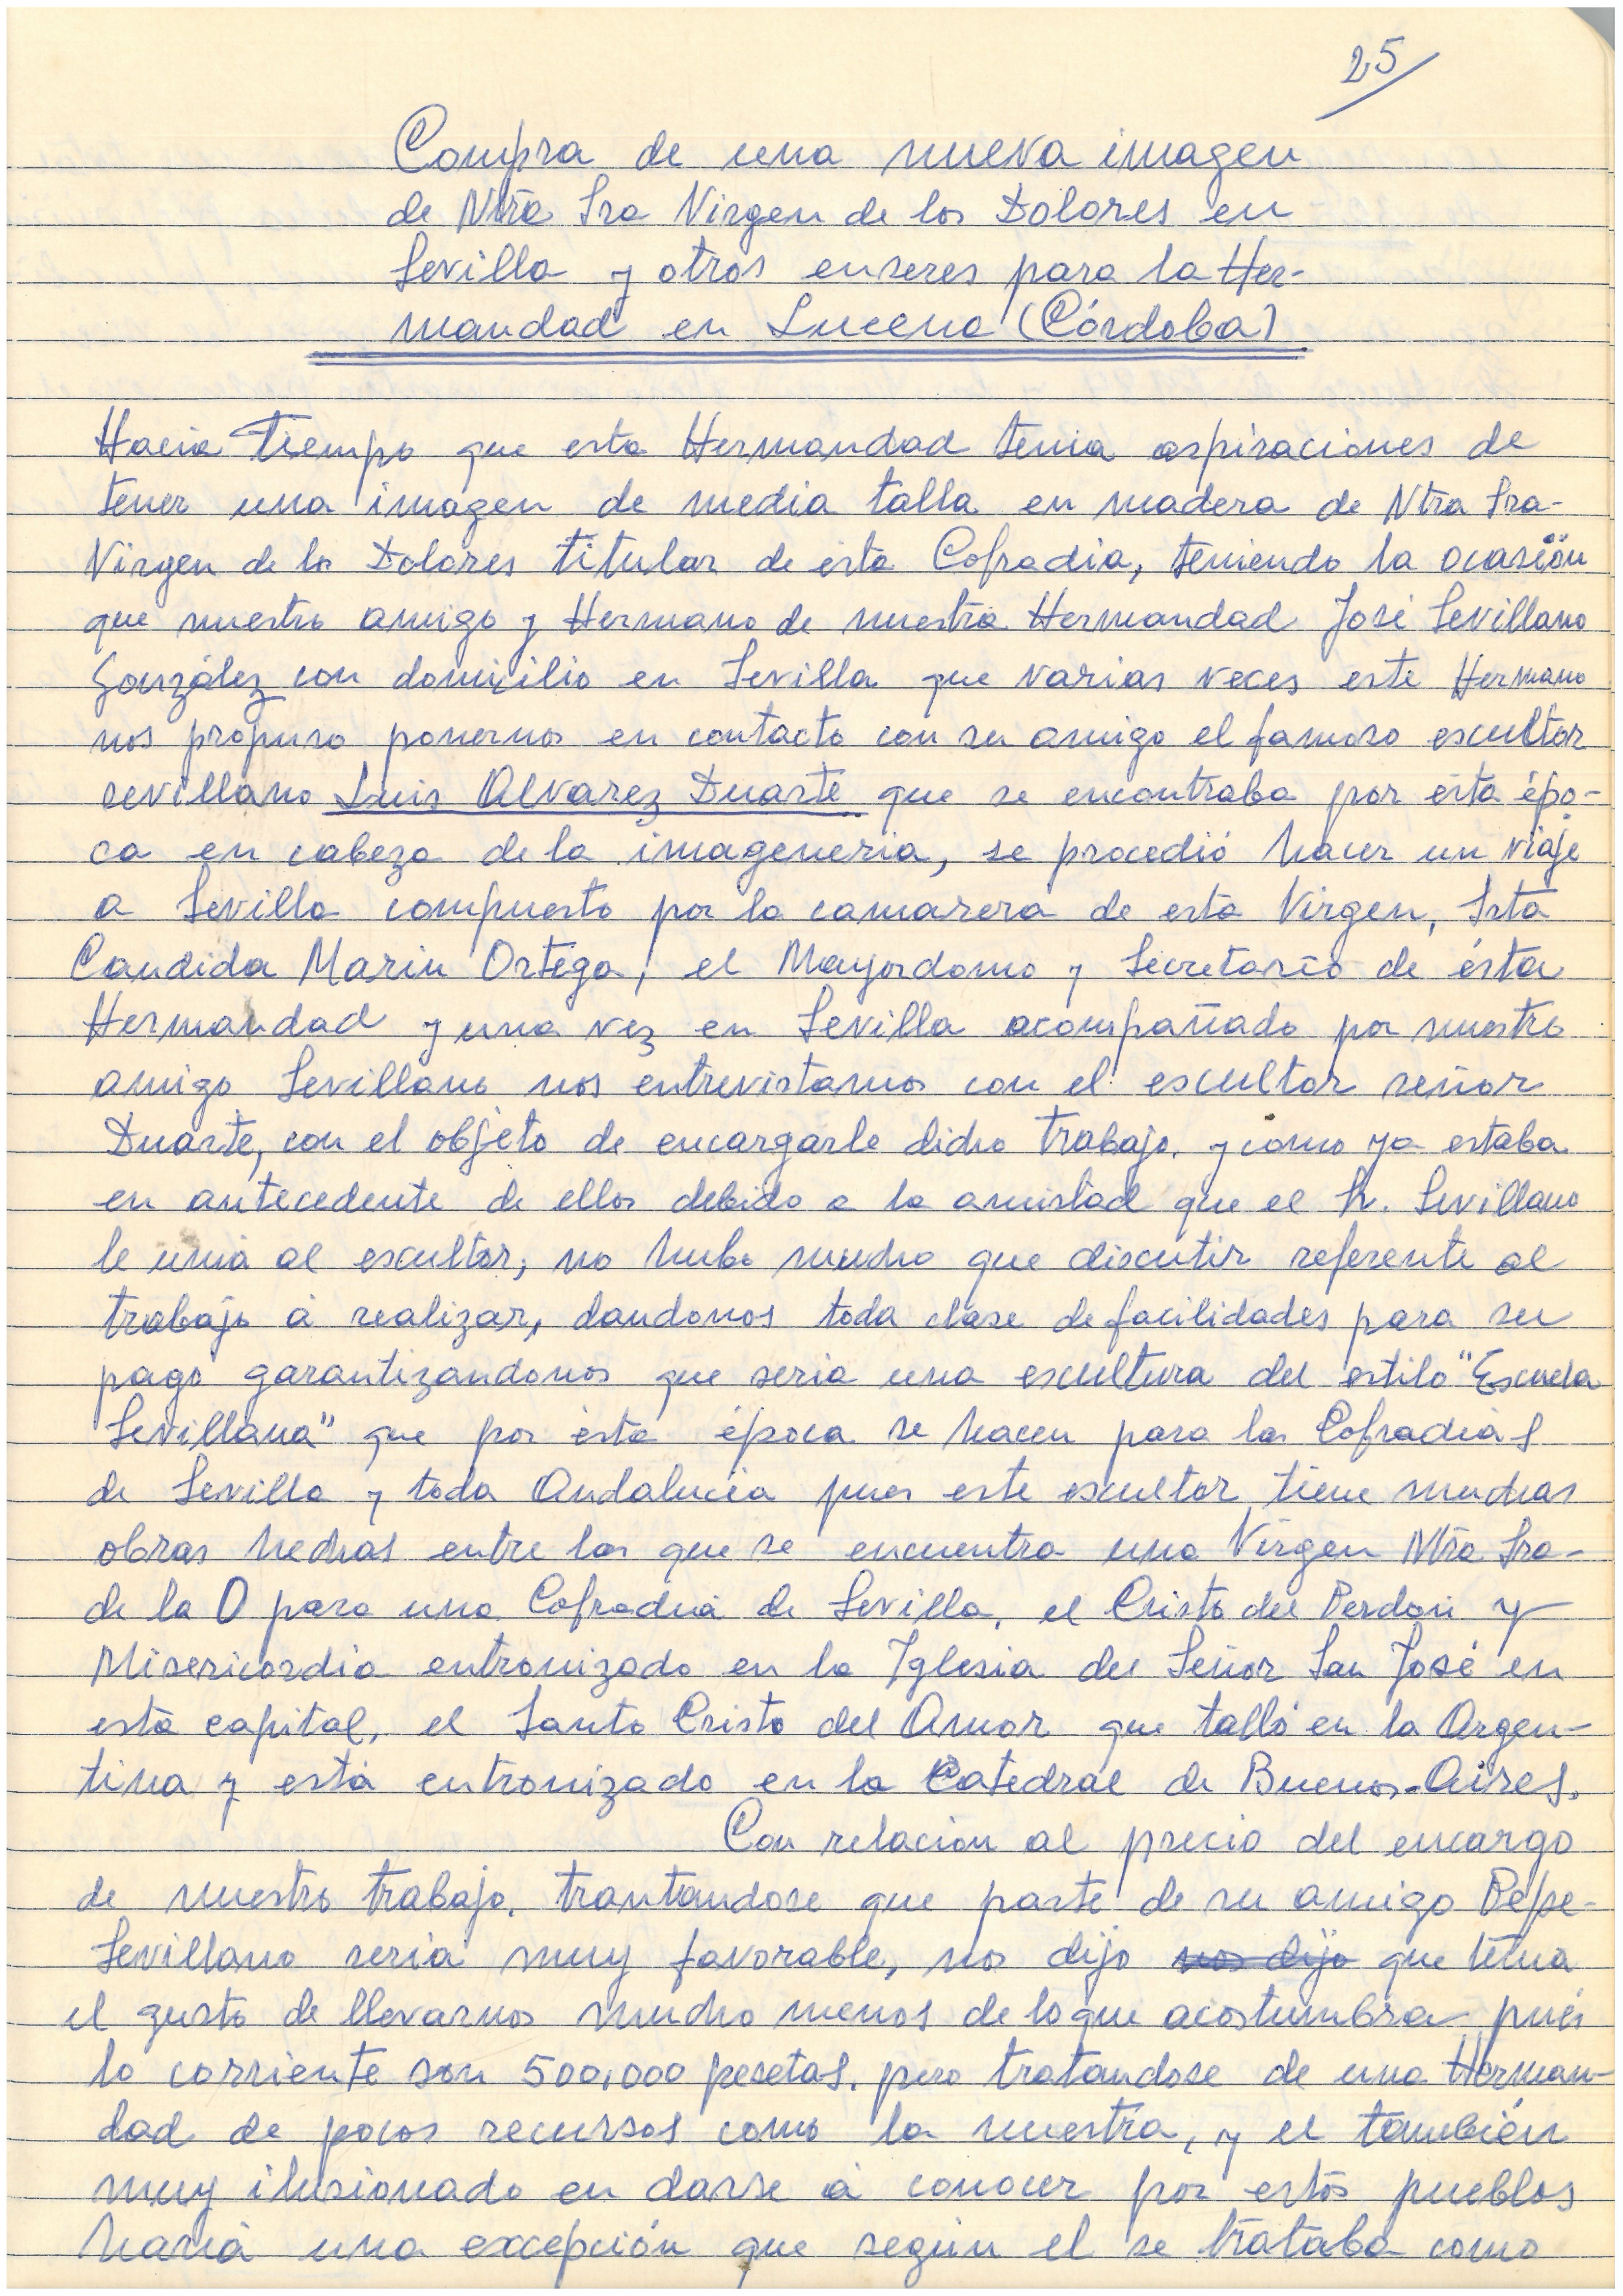 25
Compra de una nueva imagen
de Ntra Sra Virgen de los Dolores en
Sevilla y otros enseres para la Her-
mandad en Lucena (Córdoba)
Hacia Tiempo que esta Hermandad tenia aspiraciones de
tener una imagen de media talla en madera de Ntra Sra-
Virgen de los Dolores titular de esta Cofradia, teniendo la ocasión
que nuestro amigo y Hermano de nuestra Hermandad José Sevillano
González con domicilio en Sevilla que varias veces este Hermano
nos propuso ponernos en contacto con su amigo el famoso escultor
sevillano Luis Alvarez Duarte que se encontraba por esta épo-
ca en cabeza de la imageneria, se procedió hacer un viaje
a Sevilla compuesto por la camarera de esta Virgen, Srta
Candida Marin Ortega, el Mayordomo y Secretario de ésta
Hermandad y una vez en Sevilla acompañado por nuestro
amigo Sevillano nos entrevistamos con el escultor señor
Duarte, con el objeto de encargarle dicho trabajo. y como ya estaba
en antecedente de ellos debido a la amistad que el Sr. Sevillano
le unia al escultor, no hubo mucho que discutir referente al
trabajo á realizar, dandonos toda clase de facilidades para su
pago garantizandonos que seria una escultura del estilo "Escuela
Sevillana" que por esta época se hacen para las Cofradias
de Sevilla y toda Andalucia pues este escultor tiene muchas
obras hechas entre las que se encuentra una Virgen Ntra Sra-
de la O para una Cofradia de Sevilla, el Cristo del Perdón y
Misericordia entronizado en la Iglesia del Señor San José en
esta capital, el Santo Cristo del Amor que talló en la Argen-
tina y está entronizado en la Catedral de Buenos-Aires.
Con relacion al precio del encargo
de nuestro trabajo. trantandose que parte de su amigo Pepe-
Sevillano seria muy favorable, nos dijo nos dijo que tenia
el gusto de llevarnos mucho menos de lo que acostumbra pués
lo corriente son 500,000 pesetas. pero tratandose de una Herman-
dad de pocos recursos como la nuestra, y el también
muy ilusionado en darse á conocer por estos pueblos
haria una excepción que según el se trataba como